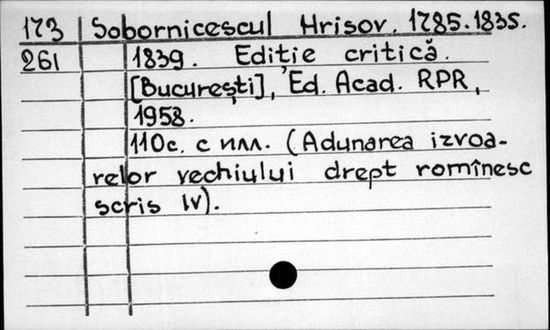 173 Sobornicescul Hrisov. 1785.1835.
261 1839. Ediție critică.
[București], Ed. Acad. RPR,
1958.
110c. с илл. (Adunarea izvoa-
relor vechiului drept romînesc
scris IV).